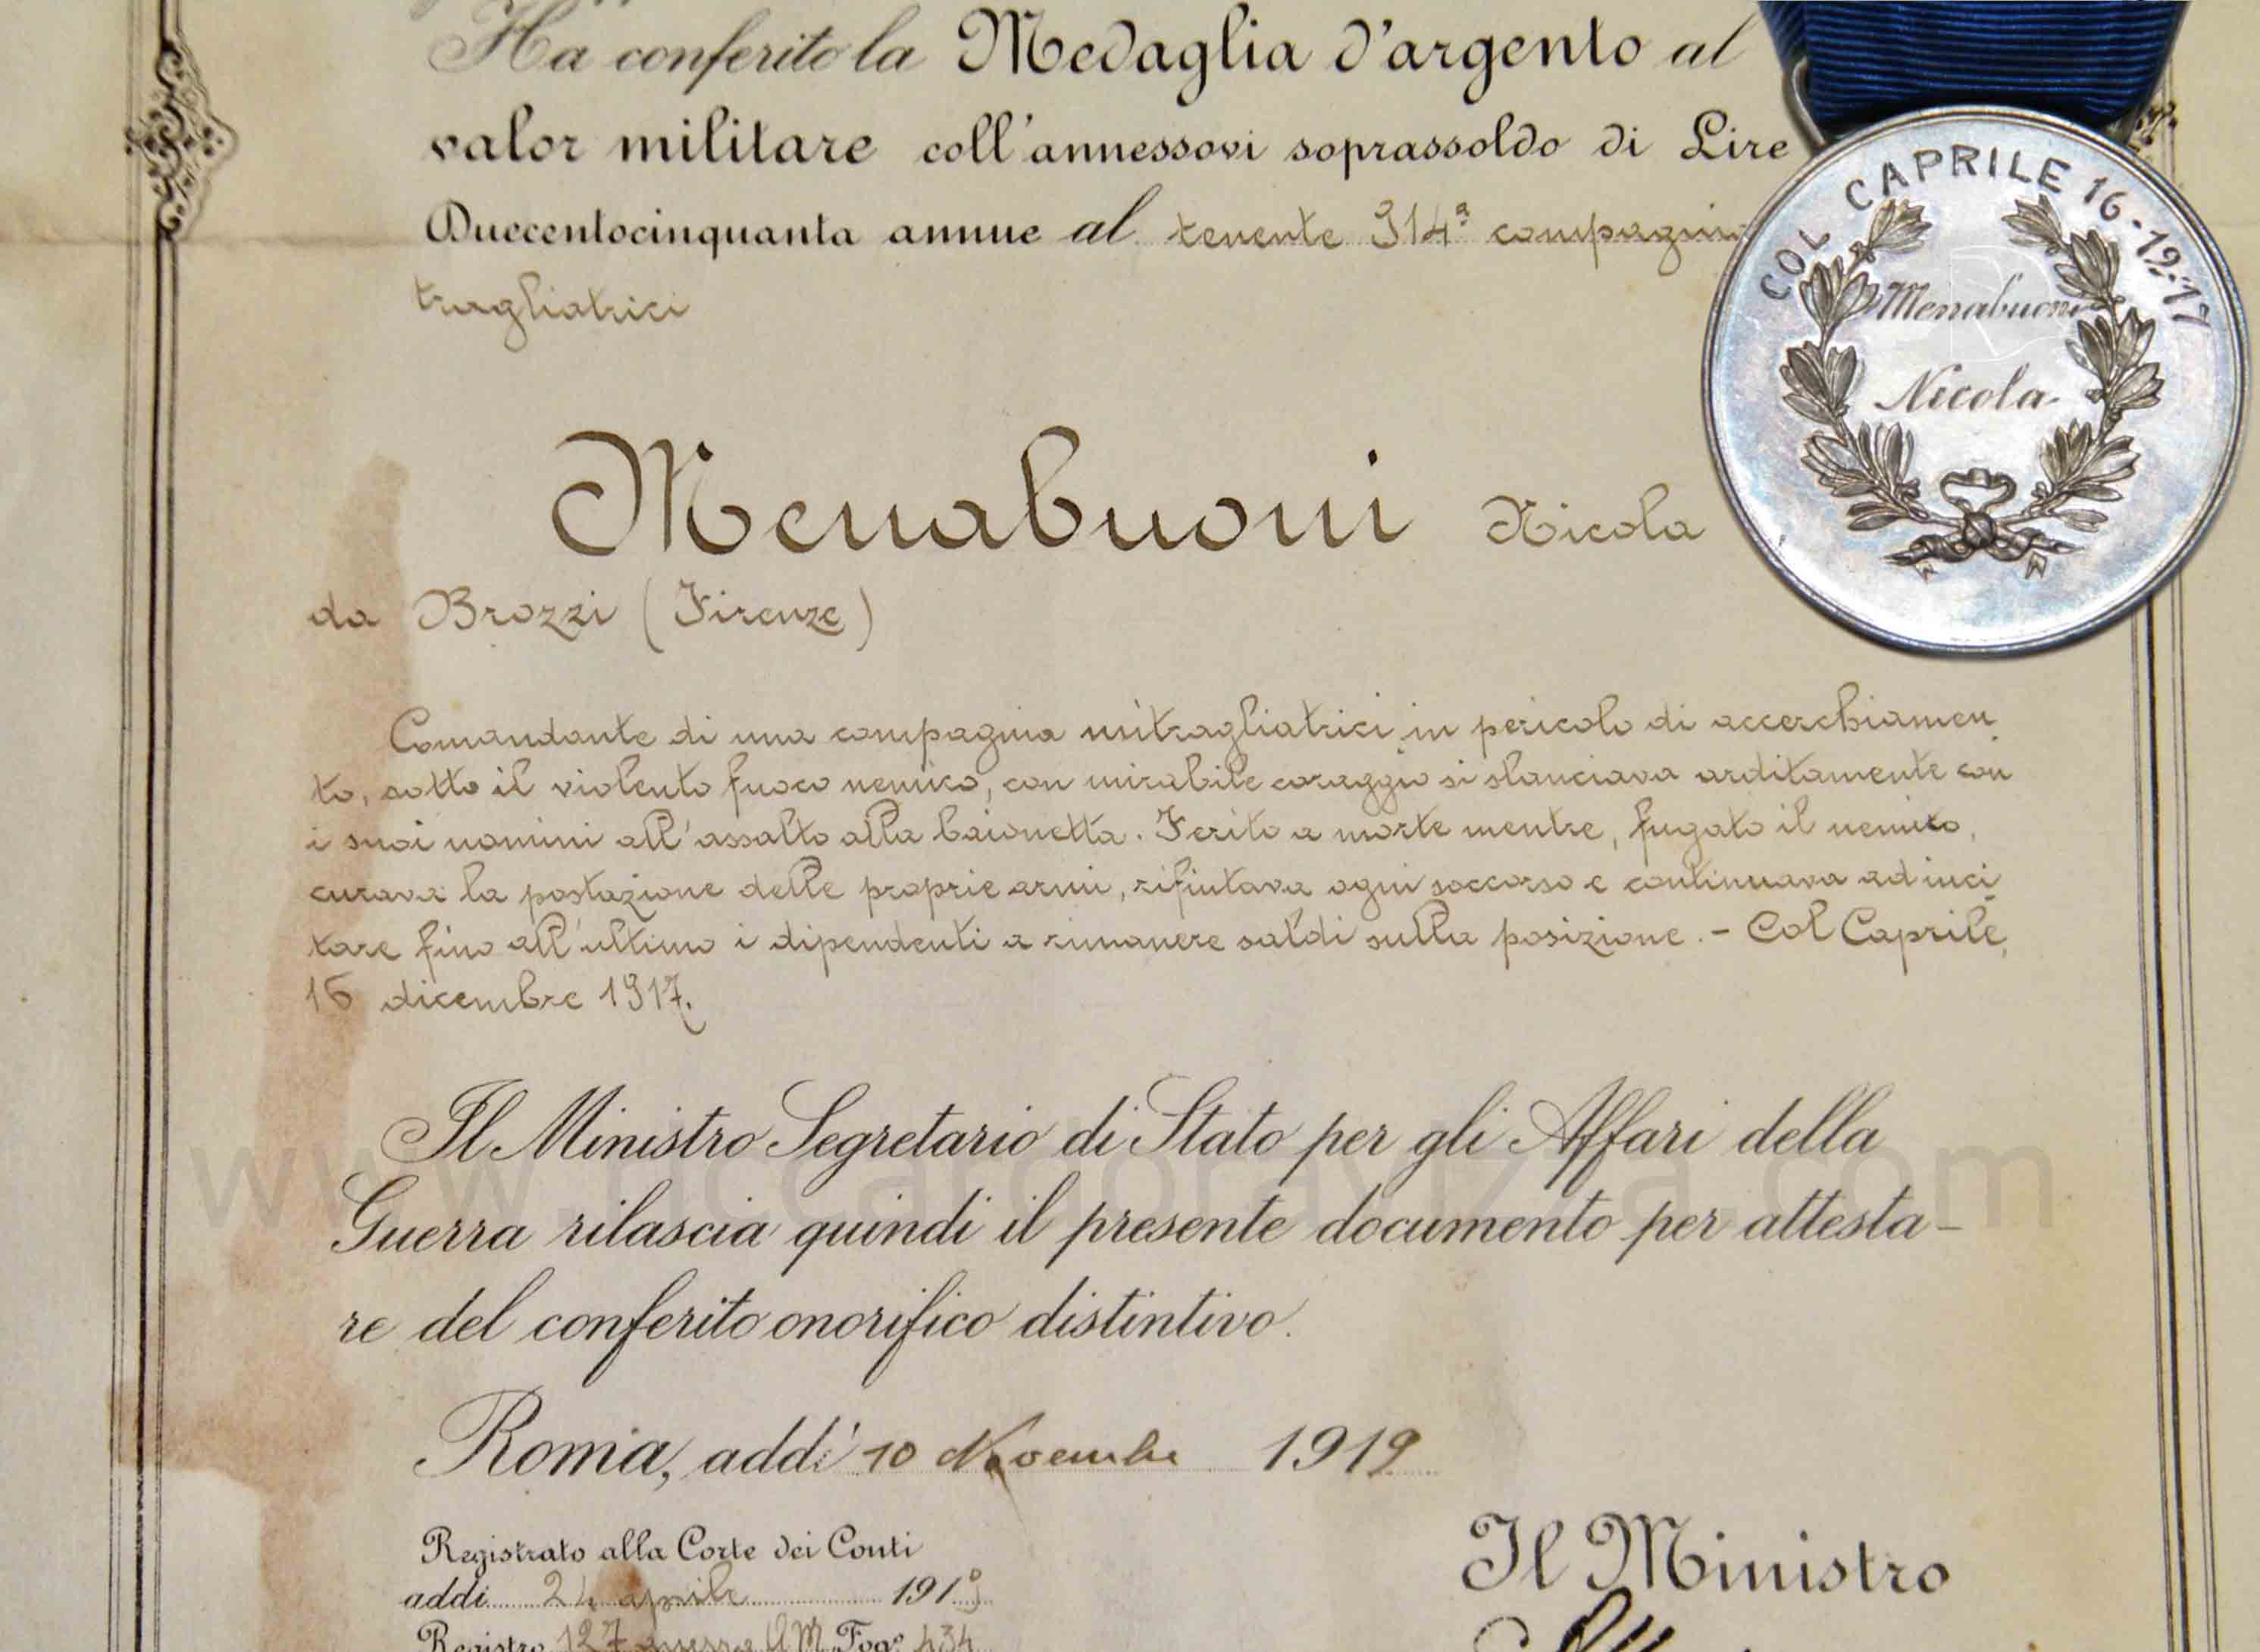 Ha conferito la Medaglia d'argento al
valor militare coll'annessovi soprassoldo di Lire
Duecentocinquanta annue al tenente 314ª compagnia
tragliatrici
Menabuoni Nicola
da Brozzi (Firenze)
Comandante di una compagnia mitragliatrici in pericolo di accerchiamen
to, sotto il violento fuoco nemico, con mirabile coraggio si slanciava arditamente con
i suoi uomini all'assalto alla baionetta. Ferito a morte mentre, fugato il nemico,
curava la postazione delle proprie armi, rifiutava ogni soccorso e continuava ad inci
tare fino all'ultimo i dipendenti a rimanere saldi sulla posizione. - Col Caprile,
16 dicembre 1917.
Il Ministro Segretario di Stato per gli Affari della
Guerra rilascia quindi il presente documento per attesta-
re del conferito onorifico distintivo.
Roma, addì 10 Novembre 1919
Registrato alla Corte dei Conti
addi 24 aprile 1919
Registro 127 guerra Fog° 434
Il Ministro
COL CAPRILE 16-12-17
Menabuoni
Nicola
www.riccardoravizza.com